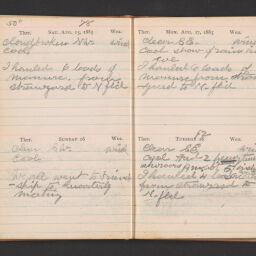 50° 78
Ther. SAT. AUG. 15, 1885 Wea.
Cloud broken N.W. wind
Cool
I hauled 6 loads of
manure from
strawyard to N. fld
Ther. SUNDAY 16 Wea.
Clear S.W. wind
Cool
We all went to Friend
-ship to Quarterly
meeting
Ther. MON. AUG. 17, 1885 Wea.
Clear S.E. wind
Cool show of rain
I hauled 6 loads of
manure from straw
yard to N. fld
58
Ther. TUESDAY 18 Wea.
Clear S.E. wind
Cool
showers
I hauled
from strawyard to
N. fld